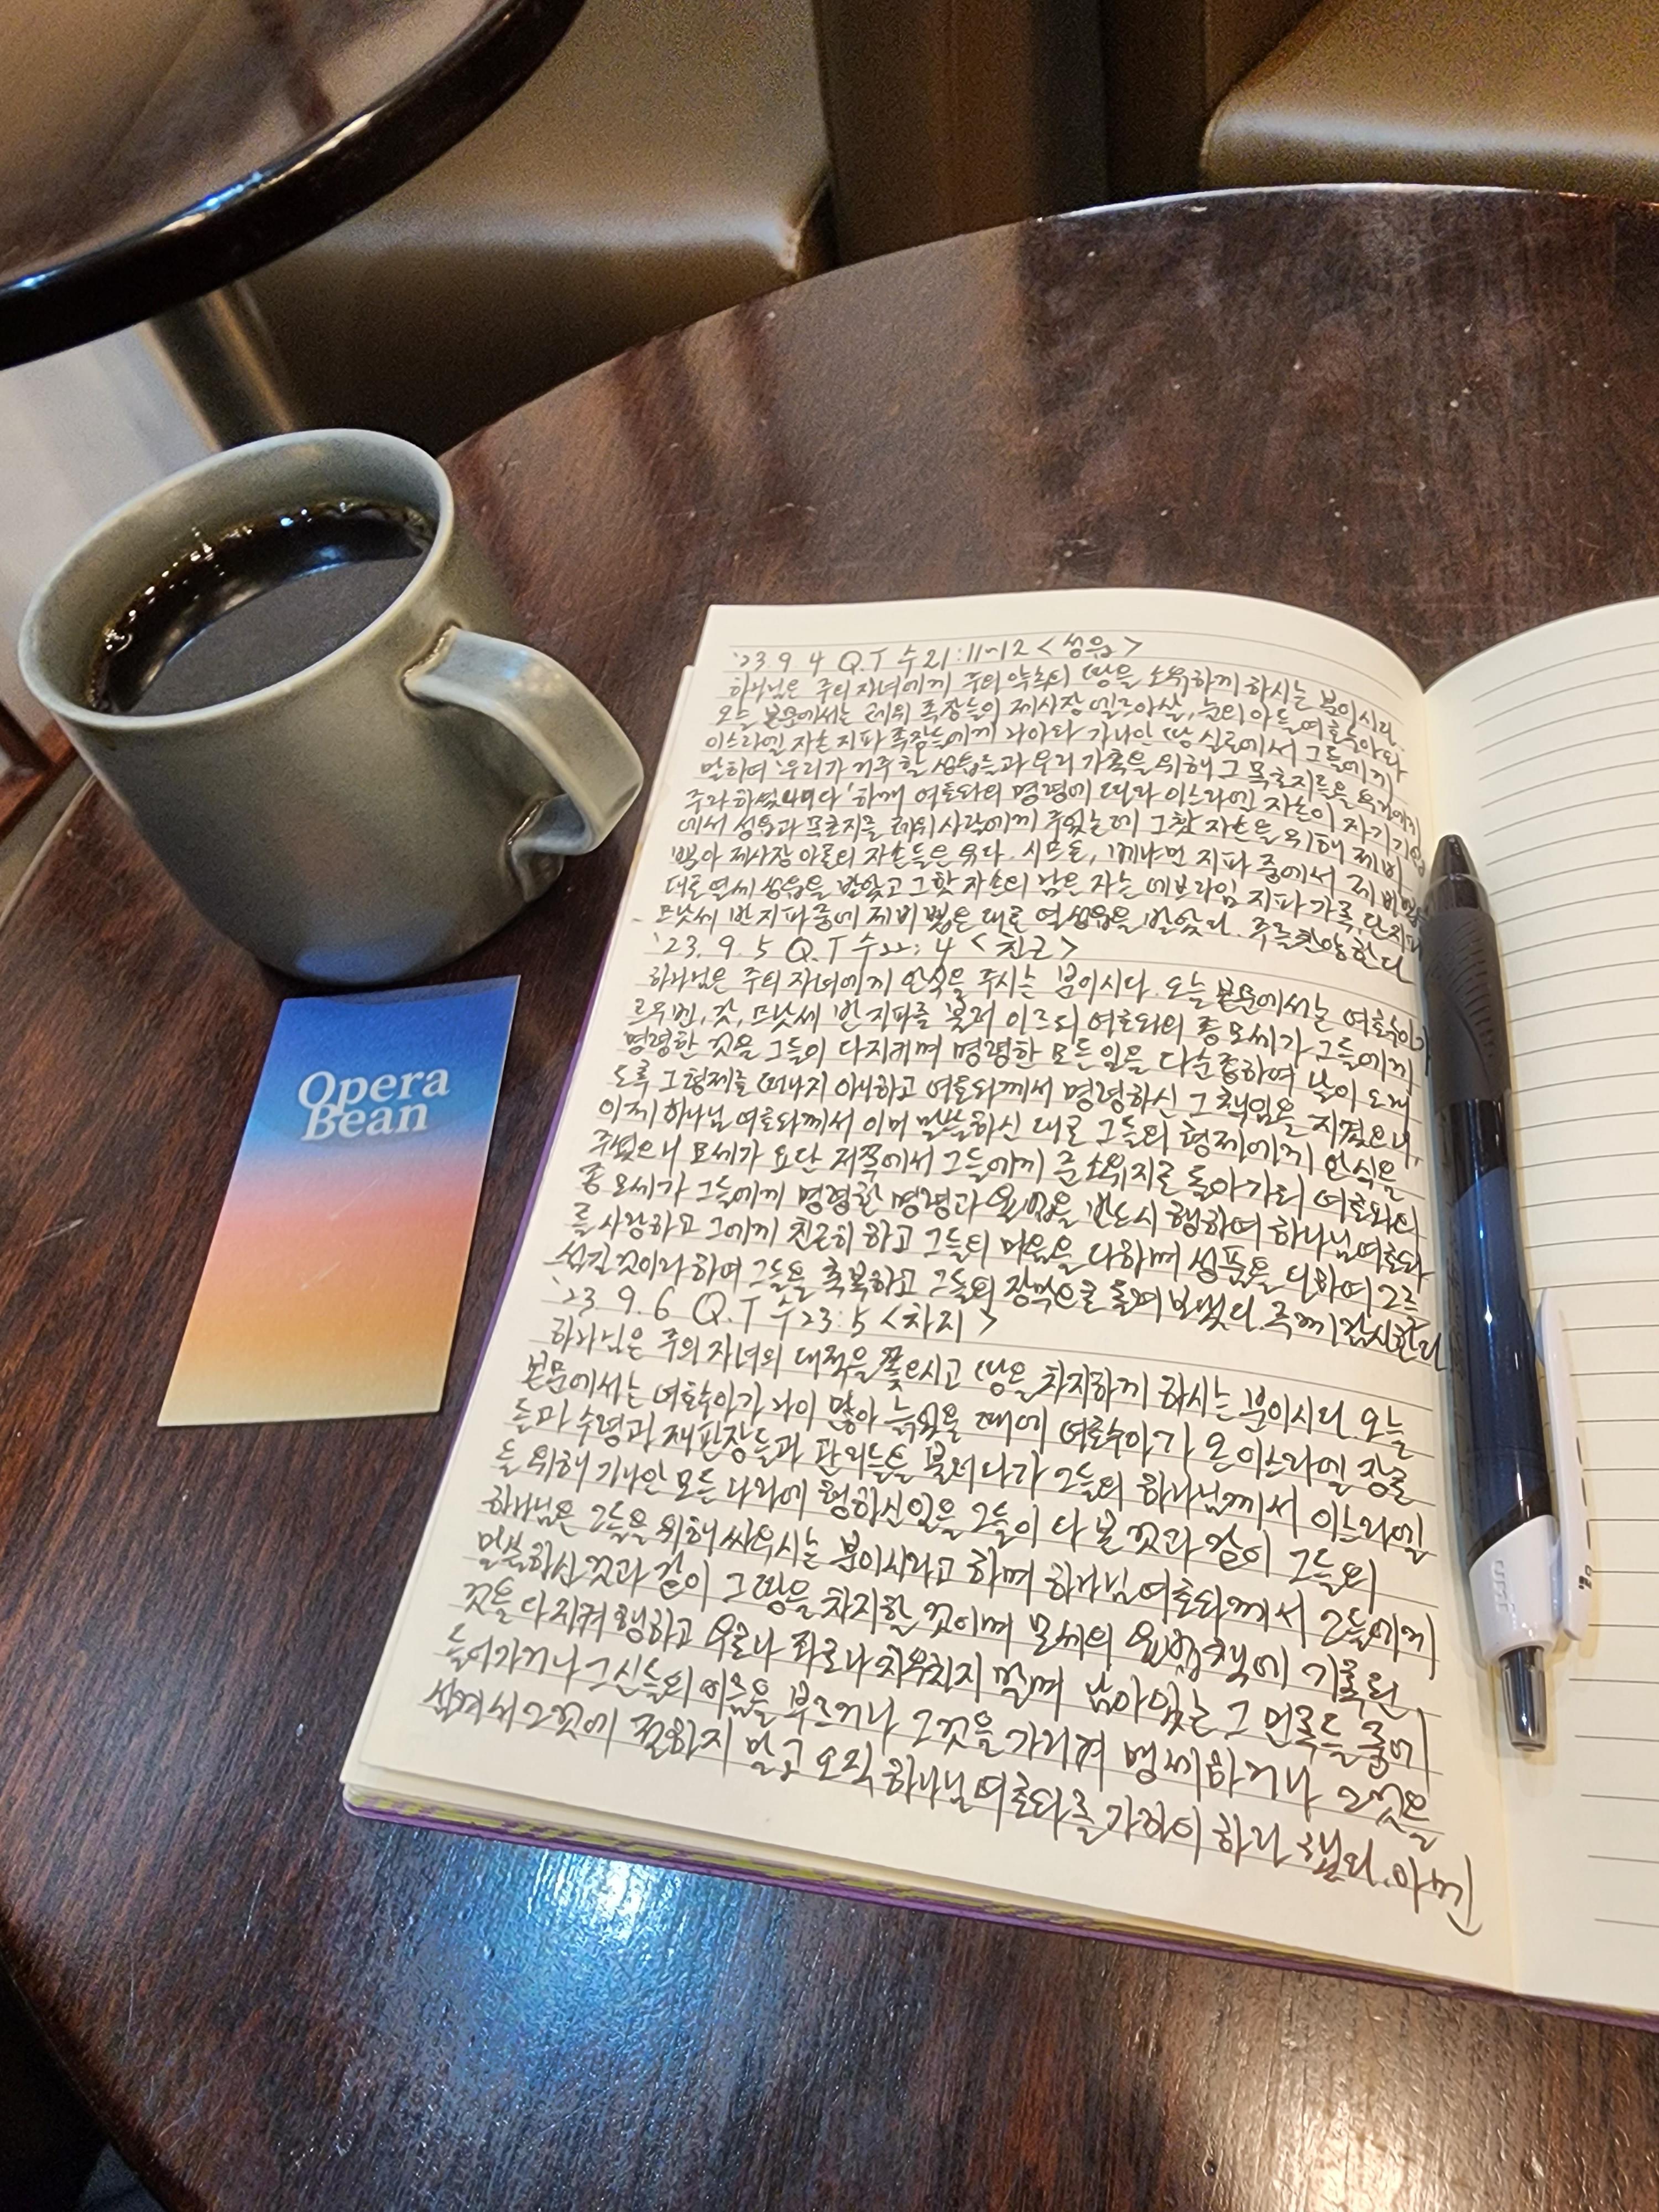 Opera
Bean
'23 9 4 Q.T 수21:11~12 <성읍>
하나님은 주의 자녀에게 주의 약속의 땅을 소유하게 하시는 분이시다.
오늘 본문에서는 레위 족장들이 제사장 엘르아살, 눈의 아들 여호수아와
이스라엘 자손 지파 족장들에게 나아와 가나안 땅 실로에서 그들에게
말하여 '우리가 거주할 성읍들과 우리 가축을 위해 그 목초지들을 우리에게
주라 하셨나이다' 하매 여호와의 명령에 따라 이스라엘 자손이 자기 기업
에서 성읍과 목초지를 레위 사람에게 주었는데 그핫 자손을 위해 제비
뽑아 제사장 아론의 자손들은 유다, 시므온, 베냐민 지파 중에서 제비뽑은
대로 열세 성읍을 받았고 그핫 자손의 남은 자는 에브라임 지파 가족, 단 지파
므낫세 반 지파 중에 제비 뽑은 대로 열 성읍을 받았다. 주를 찬양한다
'23. 9. 5 Q.T 수22:4 <친근>
하나님은 주의 자녀에게 안식을 주시는 분이시다. 오늘 본문에서는 여호수아가
르우벤, 갓, 므낫세 반 지파를 불러 이르되 여호와의 종 모세가 그들에게
명령한 것을 그들이 다 지키며 명령한 모든 일을 다 순종하여 날이 오래
도록 그 형제를 떠나지 아니하고 여호와께서 명령하신 그 책임을 지켰으니,
이제 하나님 여호와께서 이미 말씀하신 대로 그들의 형제에게 안식을
주셨으니 모세가 요단 저쪽에서 그들에게 준 소유지로 돌아가되 여호와의
종 모세가 그들에게 명령한 명령과 율법을 반드시 행하여 하나님 여호와
를 사랑하고 그에게 친근히 하고 그들의 마음을 다하며 성품을 다하여 그를
섬길 것이라 하여 그들을 축복하고 그들의 장막으로 돌려 보냈다. 주께 감사한다
'23 9. 6 Q.T 수23:5 <차지>
하나님은 주의 자녀의 대적을 쫓으시고 땅을 차지하게 하시는 분이시다. 오늘
본문에서는 여호수아가 나이 많아 늙었을 때에 여호수아가 온 이스라엘 장로
들과 수령과 재판장들과 관리들을 불러다가 그들의 하나님께서 이스라엘
을 위해 가나안 모든 나라에 행하신 일을 그들이 다 본 것과 같이 그들의
하나님은 그들을 위해 싸우시는 분이시라고 하며 하나님 여호와께서 그들에게
말씀하신 것과 같이 그 땅을 차지할 것이며 모세의 율법책에 기록된
것을 다 지켜 행하고 우로나 좌로나 치우치지 말며 남아있는 그 민족들 중에
들어가거나 그 신들의 이름을 부르거나 그것을 가리켜 맹세하거나 그것을
섬겨서 그것에 절하지 말고 오직 하나님 여호와를 가까이 하라 했다. 아멘
uni